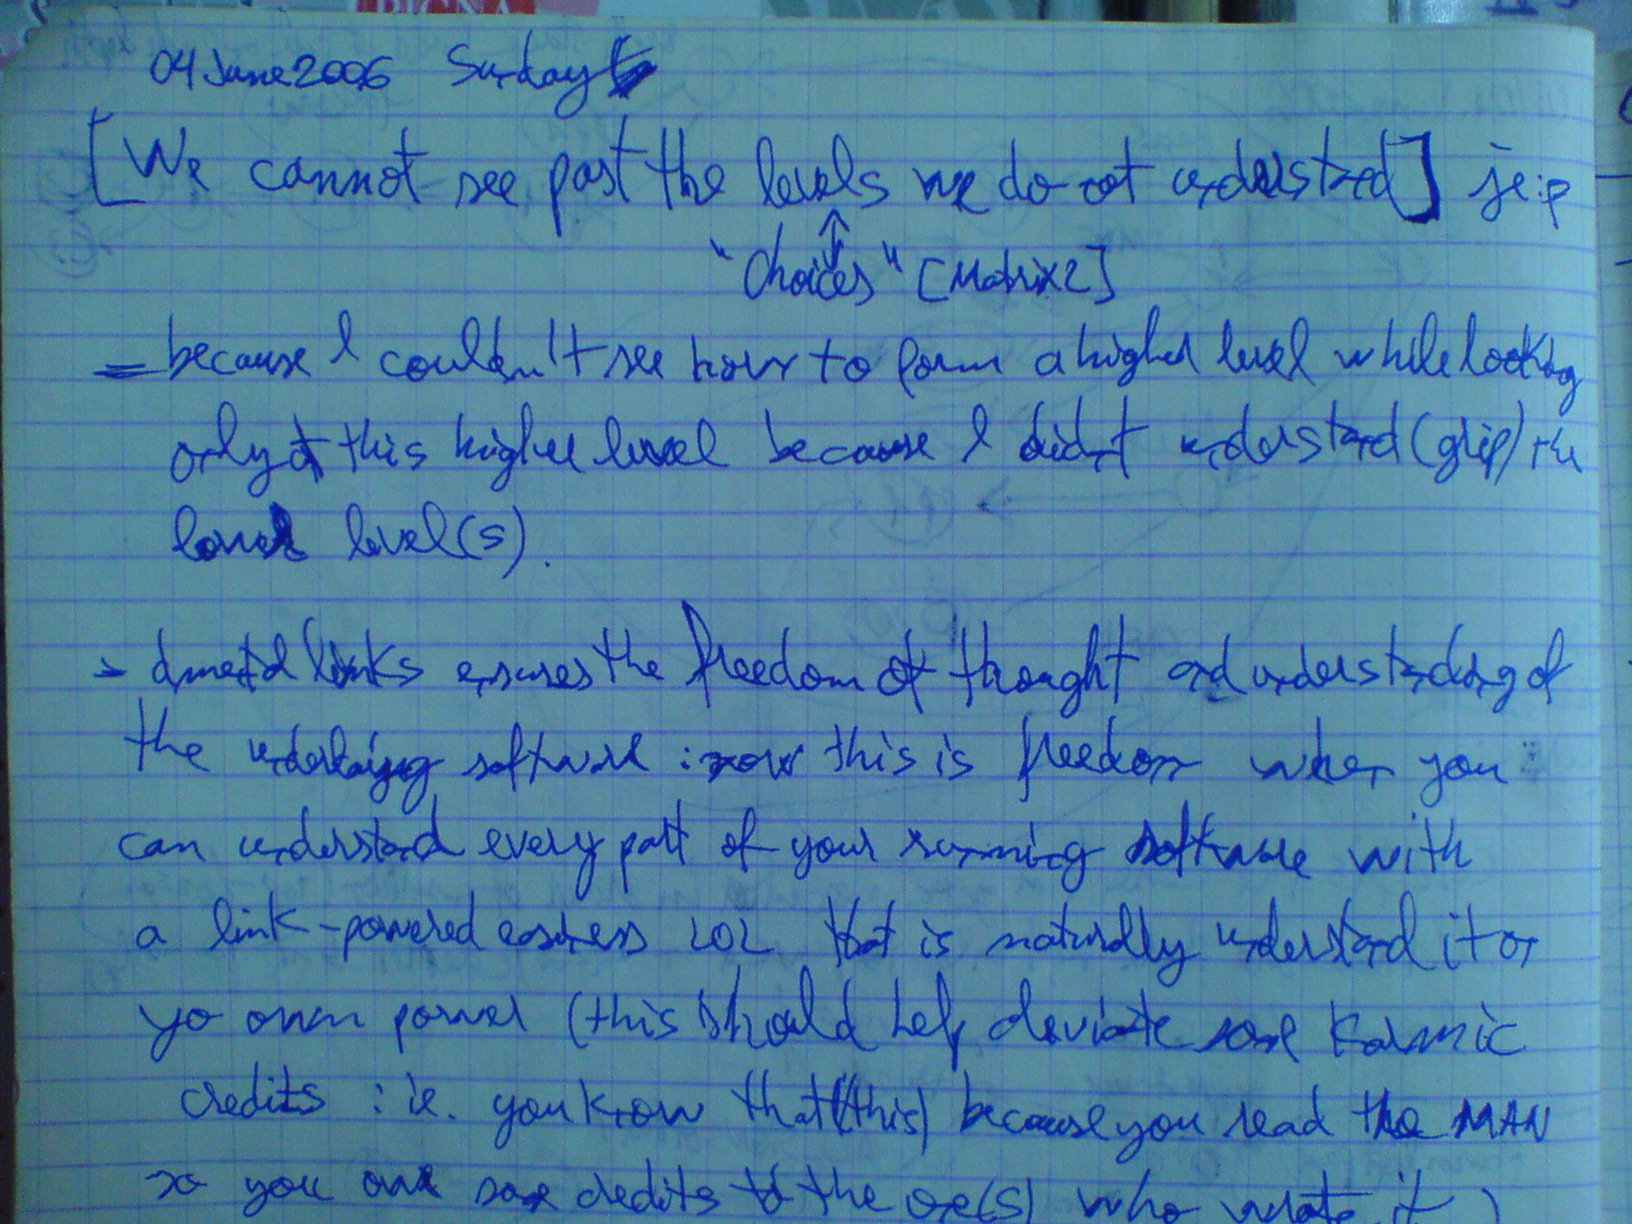 04 June 2006 Sunday
[We cannot see past the levels we do not understand] jeip
"choices" [Matrix2]
= because I couldn't see how to form a higher level while looking
only at this higher level because I didn't understand (grip) the
lower level(s).
links ensures the freedom of thought and understanding of
the underlaying software : now this is freedom when you
can understand every part of your running software with
a link-powered easiness LOL that is naturally understand it on
yo own power (this should help deviate some karmic
credits : ie. you know that (this) because you read the MAN
so you owe some credits to the one(s) who wrote it)